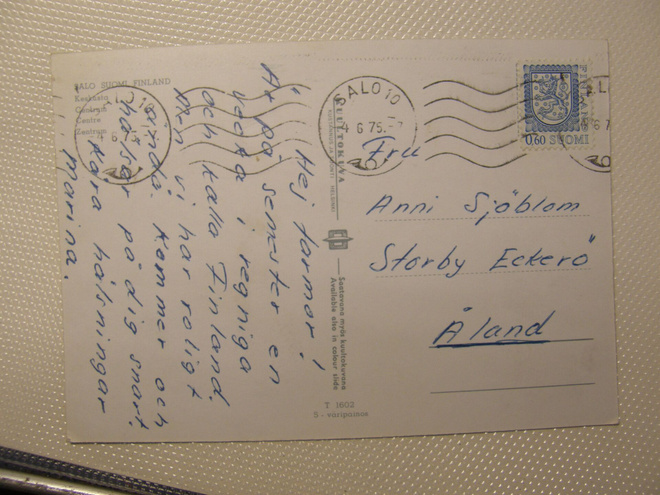 SALO SUOMI FINLAND
Keskusta
Centrum
Centre
Zentrum
Hej farmor!
Är på semester en
vecka i regniga
och kalla Finland.
Men vi har roligt
ändå. Kommer och
hälsar på dig snart.
Kära hälsningar
Marina.
Saatavana myös kuultokuvana
Available also in colour slide
T 1602
S - väripainos
SALO 10
4.6.75.-7
0,60 SUOMI
Fru
Anni Sjöblom
Storby Eckerö
Åland